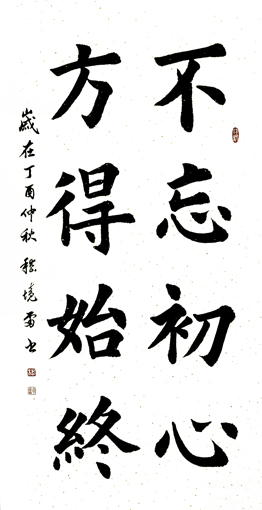 不忘初心
方得始終
歲在丁酉仲秋